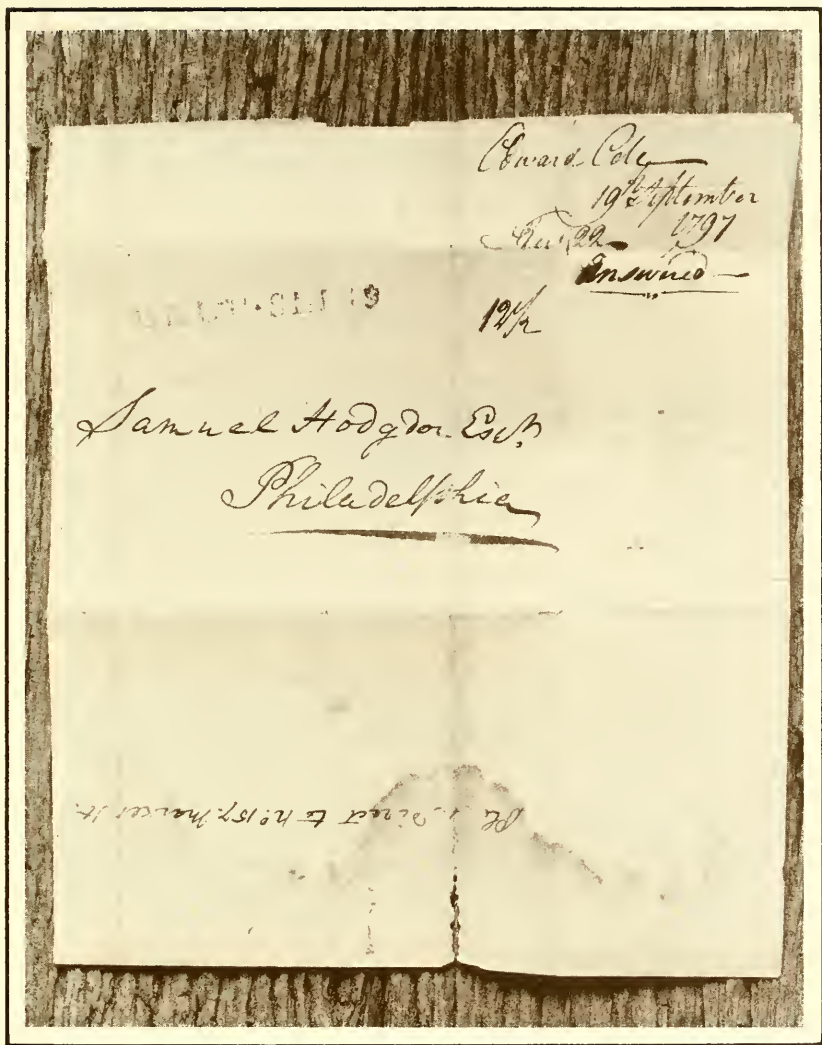 Edward Cole
19th September
1797
22
Answered
12½
SEP 19
Samuel Hodgdon Esqr.
Philadelphia
Direct to No. 157. Market St.